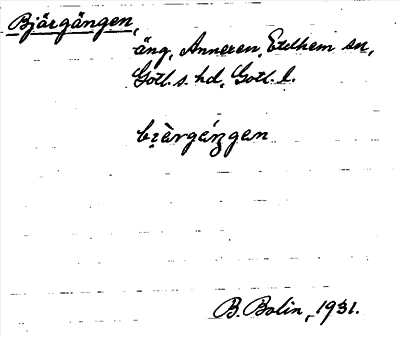 Bjärgängen,
äng, Anneren, Etelhem sn,
Gotl. s. hd, Gotl. l.
bi̯èrgáŋgan
B. Bolin, 1931.